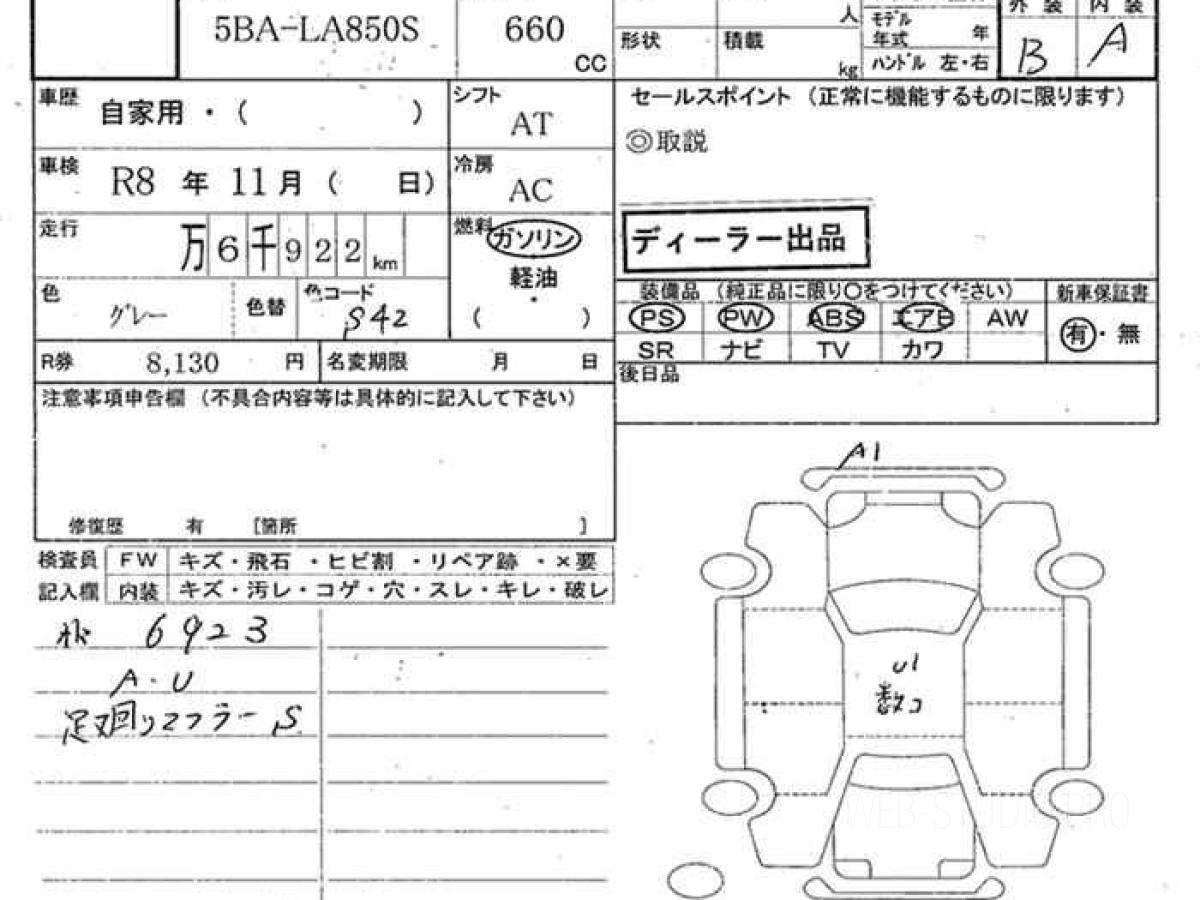 5BA-LA850S
660
CC
形状
積載
人
kg
モデル
年式
年
ハンドル 左・右
外装
内装
B
A
車歴
自家用・( )
シフト
AT
車検
R8 年 11月 ( 日)
冷房
AC
走行
万6千922km
燃料
ガソリン
軽油
( )
色
グレー
色替
色コード
S42
R券
8,130 円
名変期限 月 日
注意事項申告欄 (不具合内容等は具体的に記入して下さい)
修復歴 有 [箇所 ]
セールスポイント (正常に機能するものに限ります)
◎取説
ディーラー出品
装備品 (純正品に限り○をつけてください)
新車保証書
PS PW ABS エアB AW
有・無
SR ナビ TV カワ
後日品
検査員
記入欄
FW キズ・飛石 ・ヒビ割 ・リペア跡 ・×要
内装 キズ・汚レ・コゲ・穴・スレ・キレ・破レ
6923
A・U
足回りマフラーS
A1
U1
数コ
WEB-STUDIO.RO